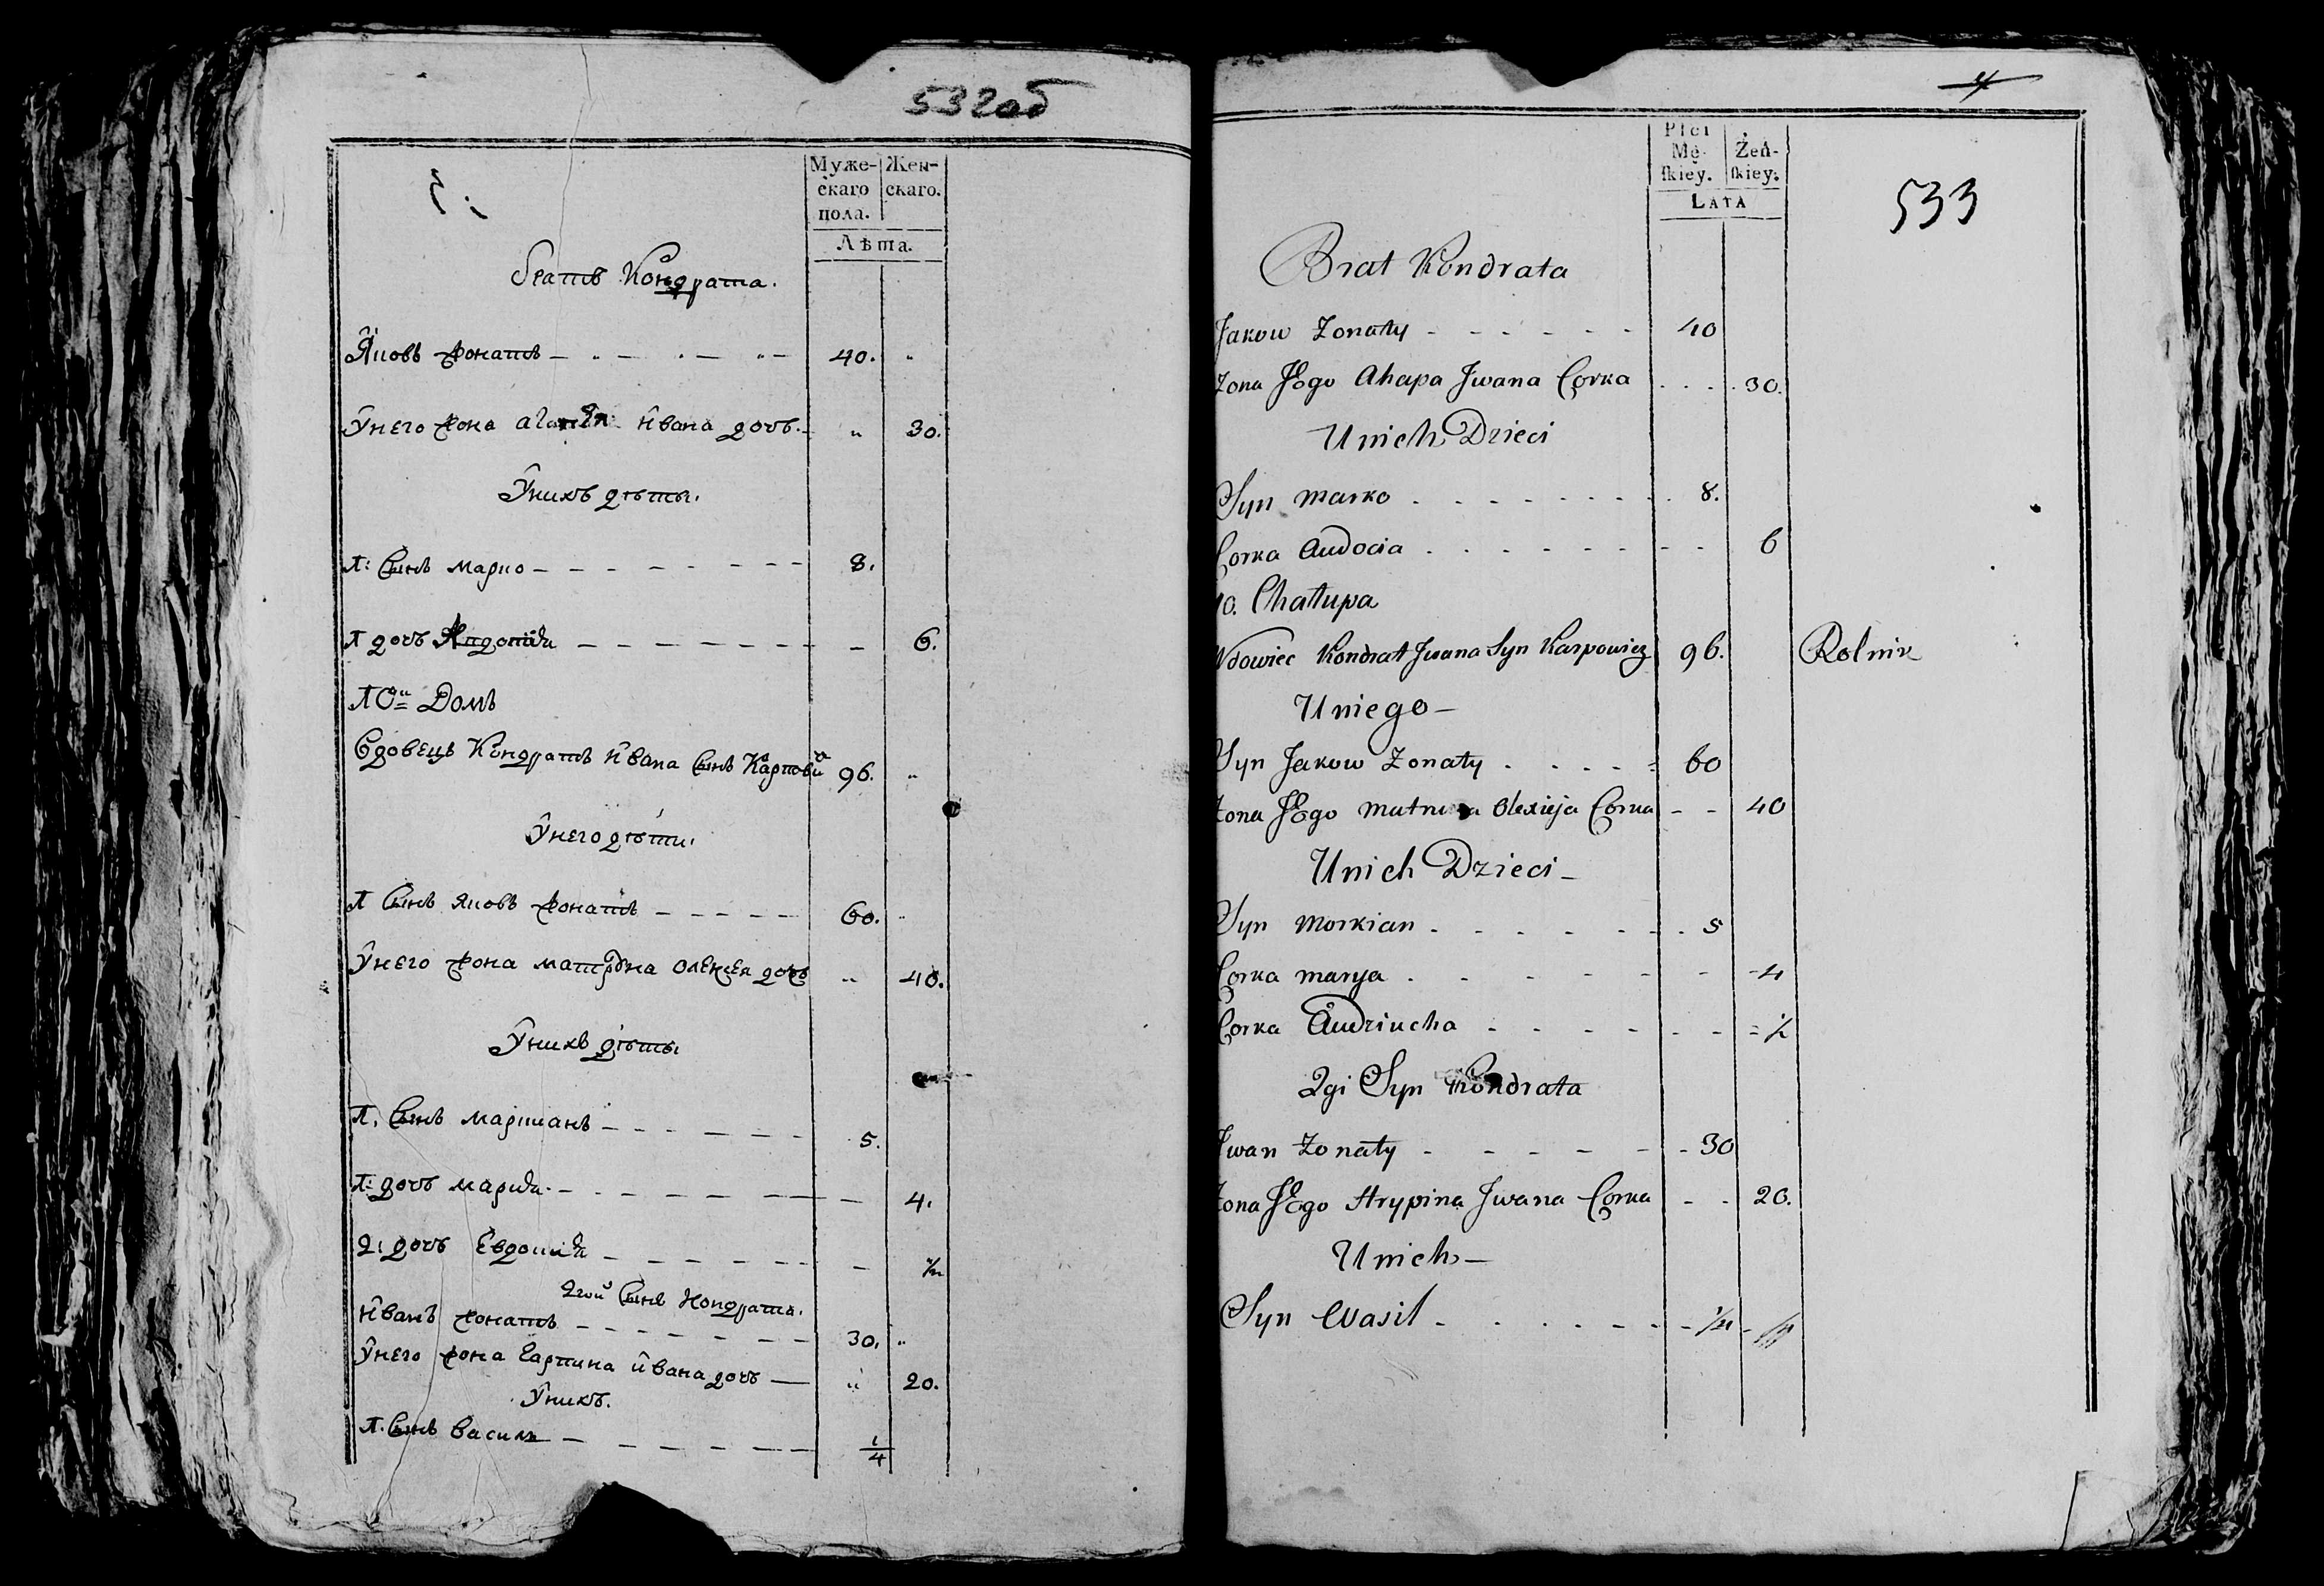 532об
Муже- Жен-
скаго скаго.
пола.
Лѣта.
братъ Кондрата.
Яковъ жонатъ 40.
Унего жона Иванa дочь 30.
Унихъ дѣти.
1: Сынъ марко 8.
1 дочь 6.
10й Домъ
Вдовецъ Кондратъ Ивана Сынъ Карпович 96.
Унего дѣти.
1 Сынъ яковъ жонатъ 60.
Унего жона матруна олексея дочь 40.
Унихъ дѣти
1. Сынъ маркианъ 5.
1: дочь мария 4.
2: дочь Евдокия ½
2гой Сынъ Кондрата.
Иванъ жонатъ 30.
Унего жона Гарпина ивана дочь 20.
Унихъ.
1. Сынъ василь 1/4
4
533
Płci
Mę- Żeń-
ſkiey. ſkiey.
LATA
Brat Kondrata
Jakow Zonaty 40
Zona JEgo Ahapa Jwana Corka 30.
Unich Dzieci
Syn Marko 8.
Corka Audocia 6
10. Chałupa
Wdowiec Kondrat Jwana Syn Karpowicz 96. Rolnik
Uniego
Syn Jakow Zonaty 60
Zona JEgo Olexieja Corka 40
Unich Dzieci
Syn Morkian 5
Corka Marya 4
Corka Audziucha ½
2gi Syn Kondrata
Jwan Zonaty 30
Zona JEgo Hrypina Jwana Corka 20.
Unich
Syn Wasil 1/4